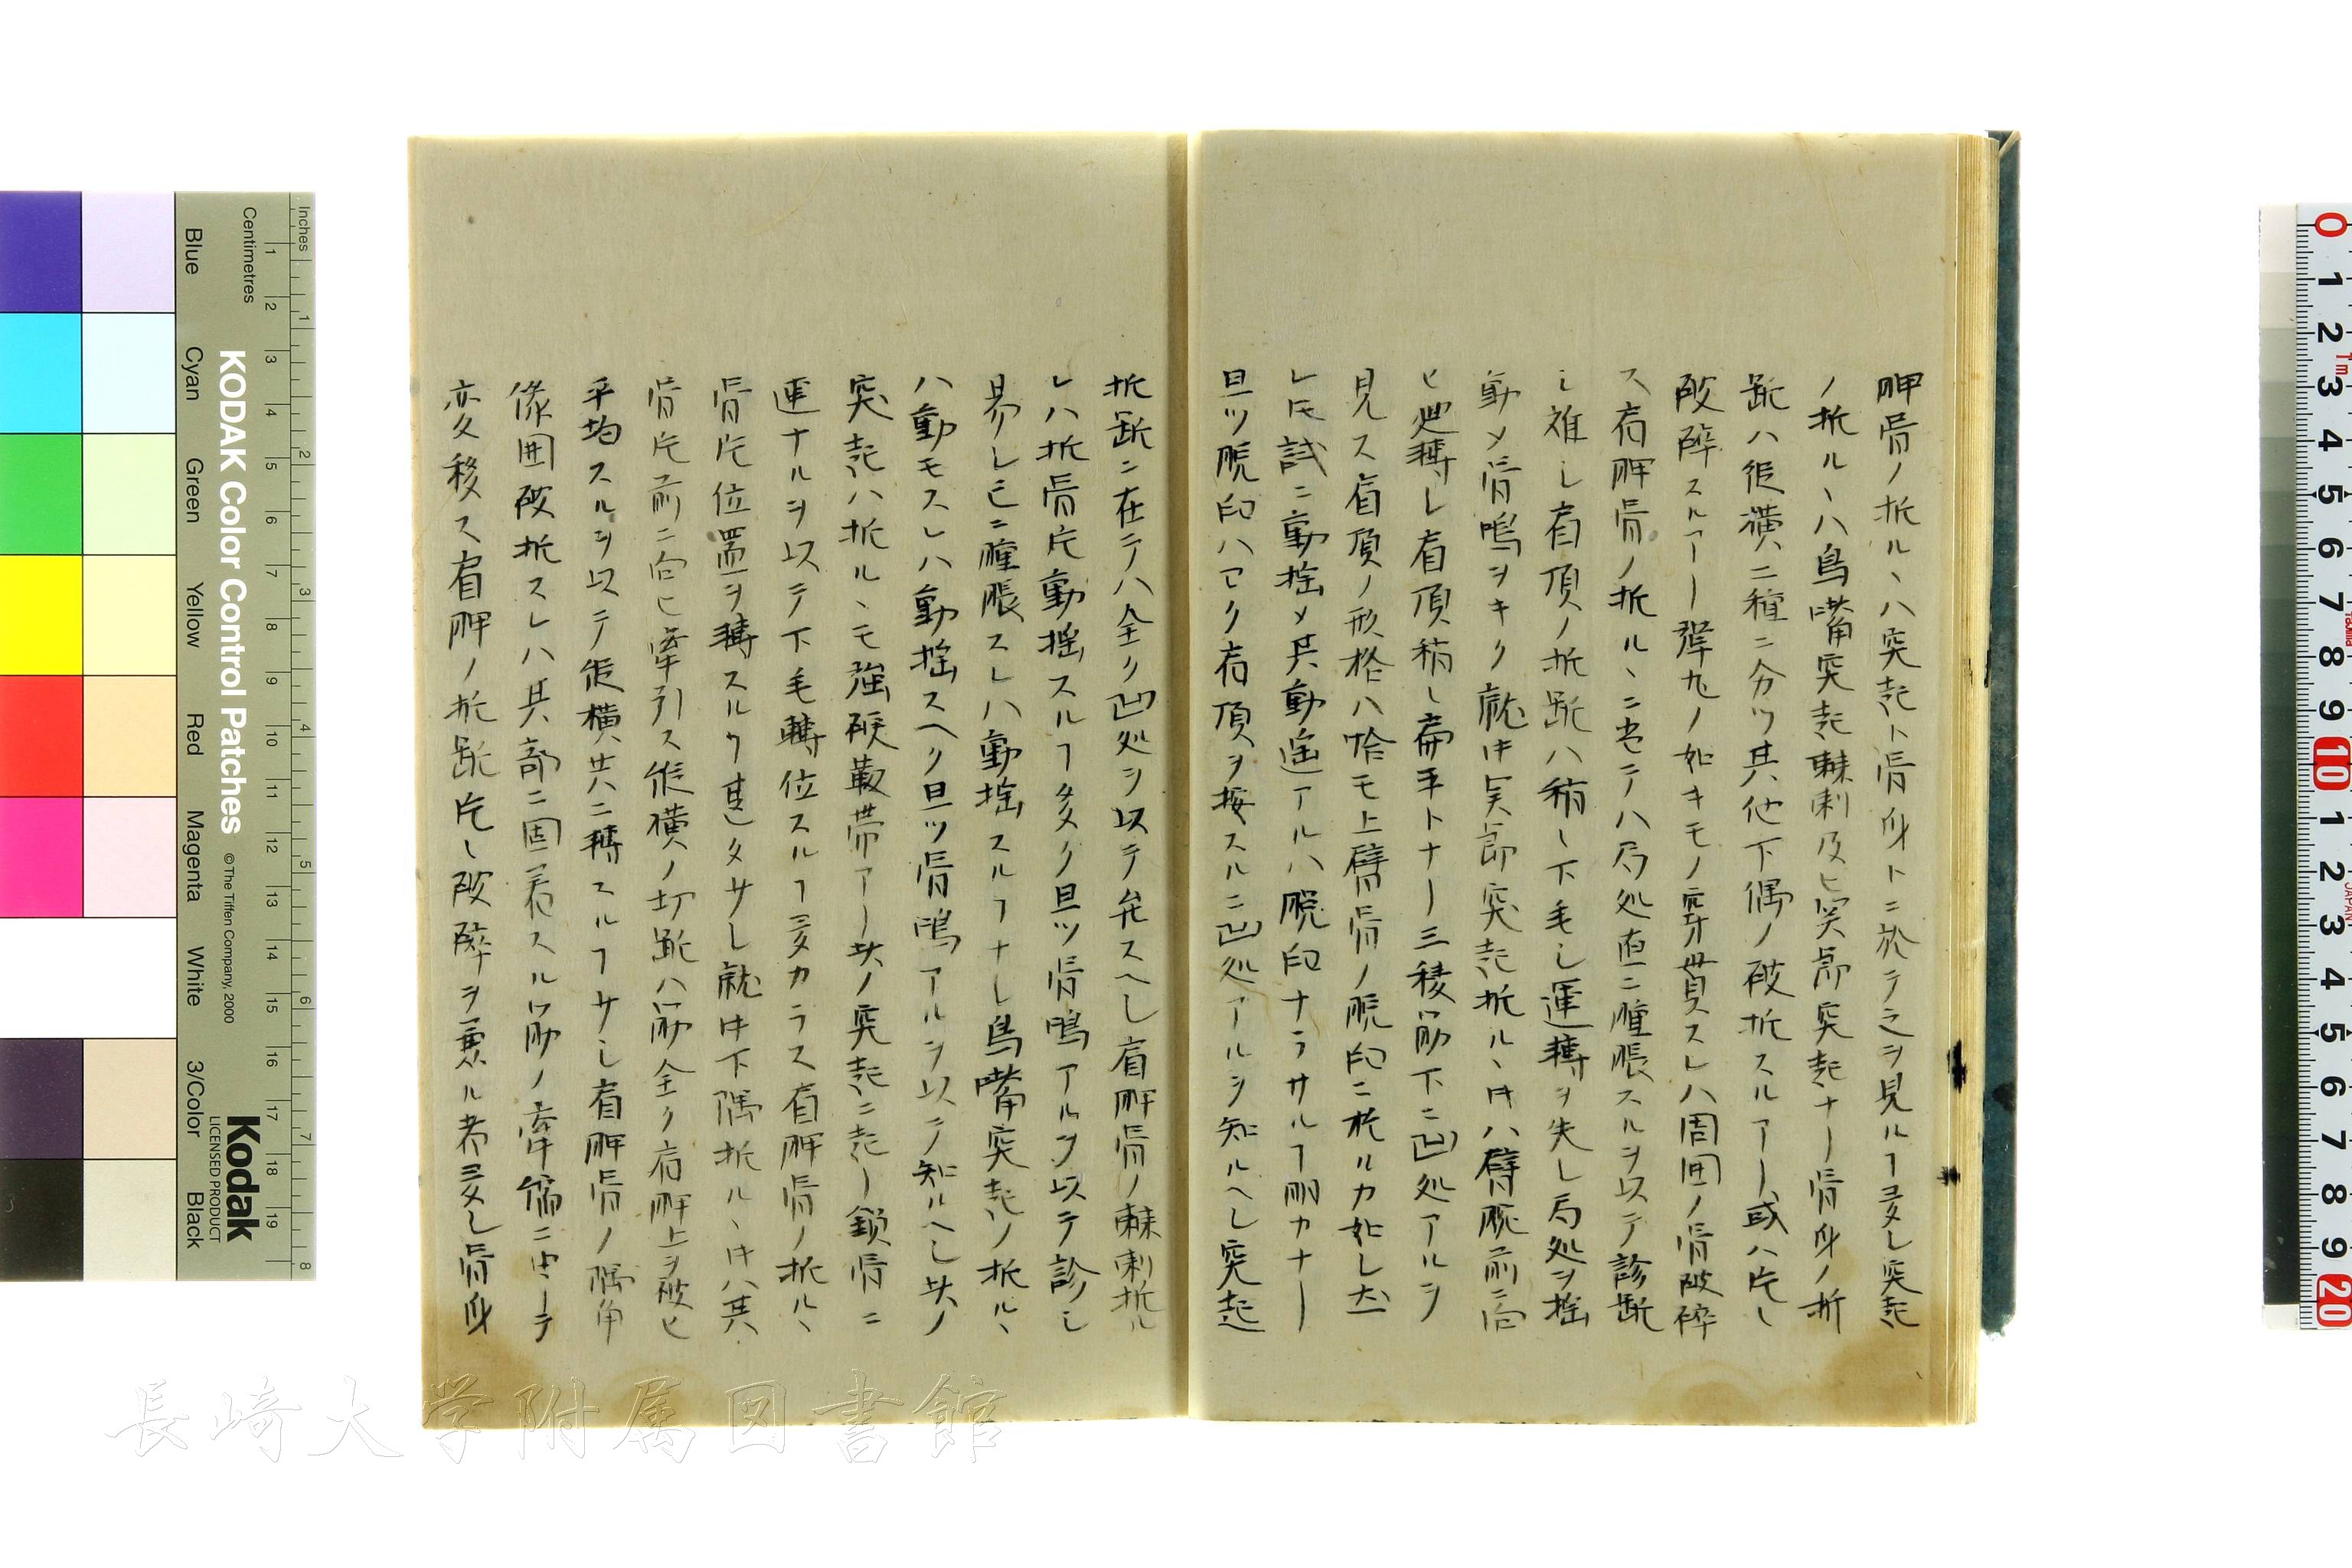 胛骨ノ折ルヽハ突起ト骨身トニ於テ之ヲ見ルヿ多し突起
ノ折ルヽハ鳥嘴突起棘刺及ヒ突起ナー骨身ノ折
断ハ縦横二種ニ分ツ其他下偶ノ破折スルアー或ハ片し
破碎スルアー弾丸ノ如キモノ穿貫スレハ周囲ノ骨破碎
ス肩胛骨ノ折ルヽニ至テハ局処直ニ腫脹スルヲ以テ診断
し難し肩頂ノ折断ハ稍し下毛し運轉ヲ失し局処ヲ揺
動メ骨鳴ヲキク就中突起折ルヽ片ハ臂腕前ニ向
ヒ轉し肩頂稍し扁平トナー三稜筋下ニ凹処アルヲ
見ス肩頂ノ形格ハ恰モ上臂骨ノ脱臼ニ於ルカ如し
レ𪜈試ニ動揺メ其動遥アルハ脱臼ナラサルヿ明カナー
且ツ脱臼ハ肩頂ヲ按スルニ凹処アルヲ知ルヘし突起
折断ニ在テハ全ク凹処ヲ以テ弁スヘし肩胛骨ノ棘刺折ル
レハ折骨片動揺スルヿ多ク且ツ骨鳴アルヲ以テ診し
易し已ニ腫脹スレハ動揺スルヿナし鳥嘴突起ノ折ルヽ
ハ動モスレハ動揺スヘク且ツ骨鳴アルヲ以テ知ルヘし共ノ
突起ハ折ルヽモ強靱帯アー共ノ突起ニ起ー鎖骨ニ
連ナルヲ以テ下毛轉位スルヿ多カラス肩胛骨ノ折ルヽ
骨片位置ヲ轉スルヿ甚タサし就中下隅折ルヽ片ハ其
骨片前ニ向ヒ牽引ス縦横ノ切断ハ筋全ク肩胛上ヲ被ヒ
平均スルヲ以テ縦横共ニ轉スルヿサし肩胛骨ノ隅角
傢囲破折スレハ其部ニ固着スル筋ノ牽縮ニ由ーテ
変移ス肩胛ノ折断片し破碎ヲ兼ル者多し骨身
Inches
Centimetres
Blue
Cyan
Green
Yellow
Red
Magenta
White
3/Color
Black
KODAK Color Control Patches
© The Tiffen Company, 2000
Kodak
LICENSED PRODUCT
長崎大学附属図書館